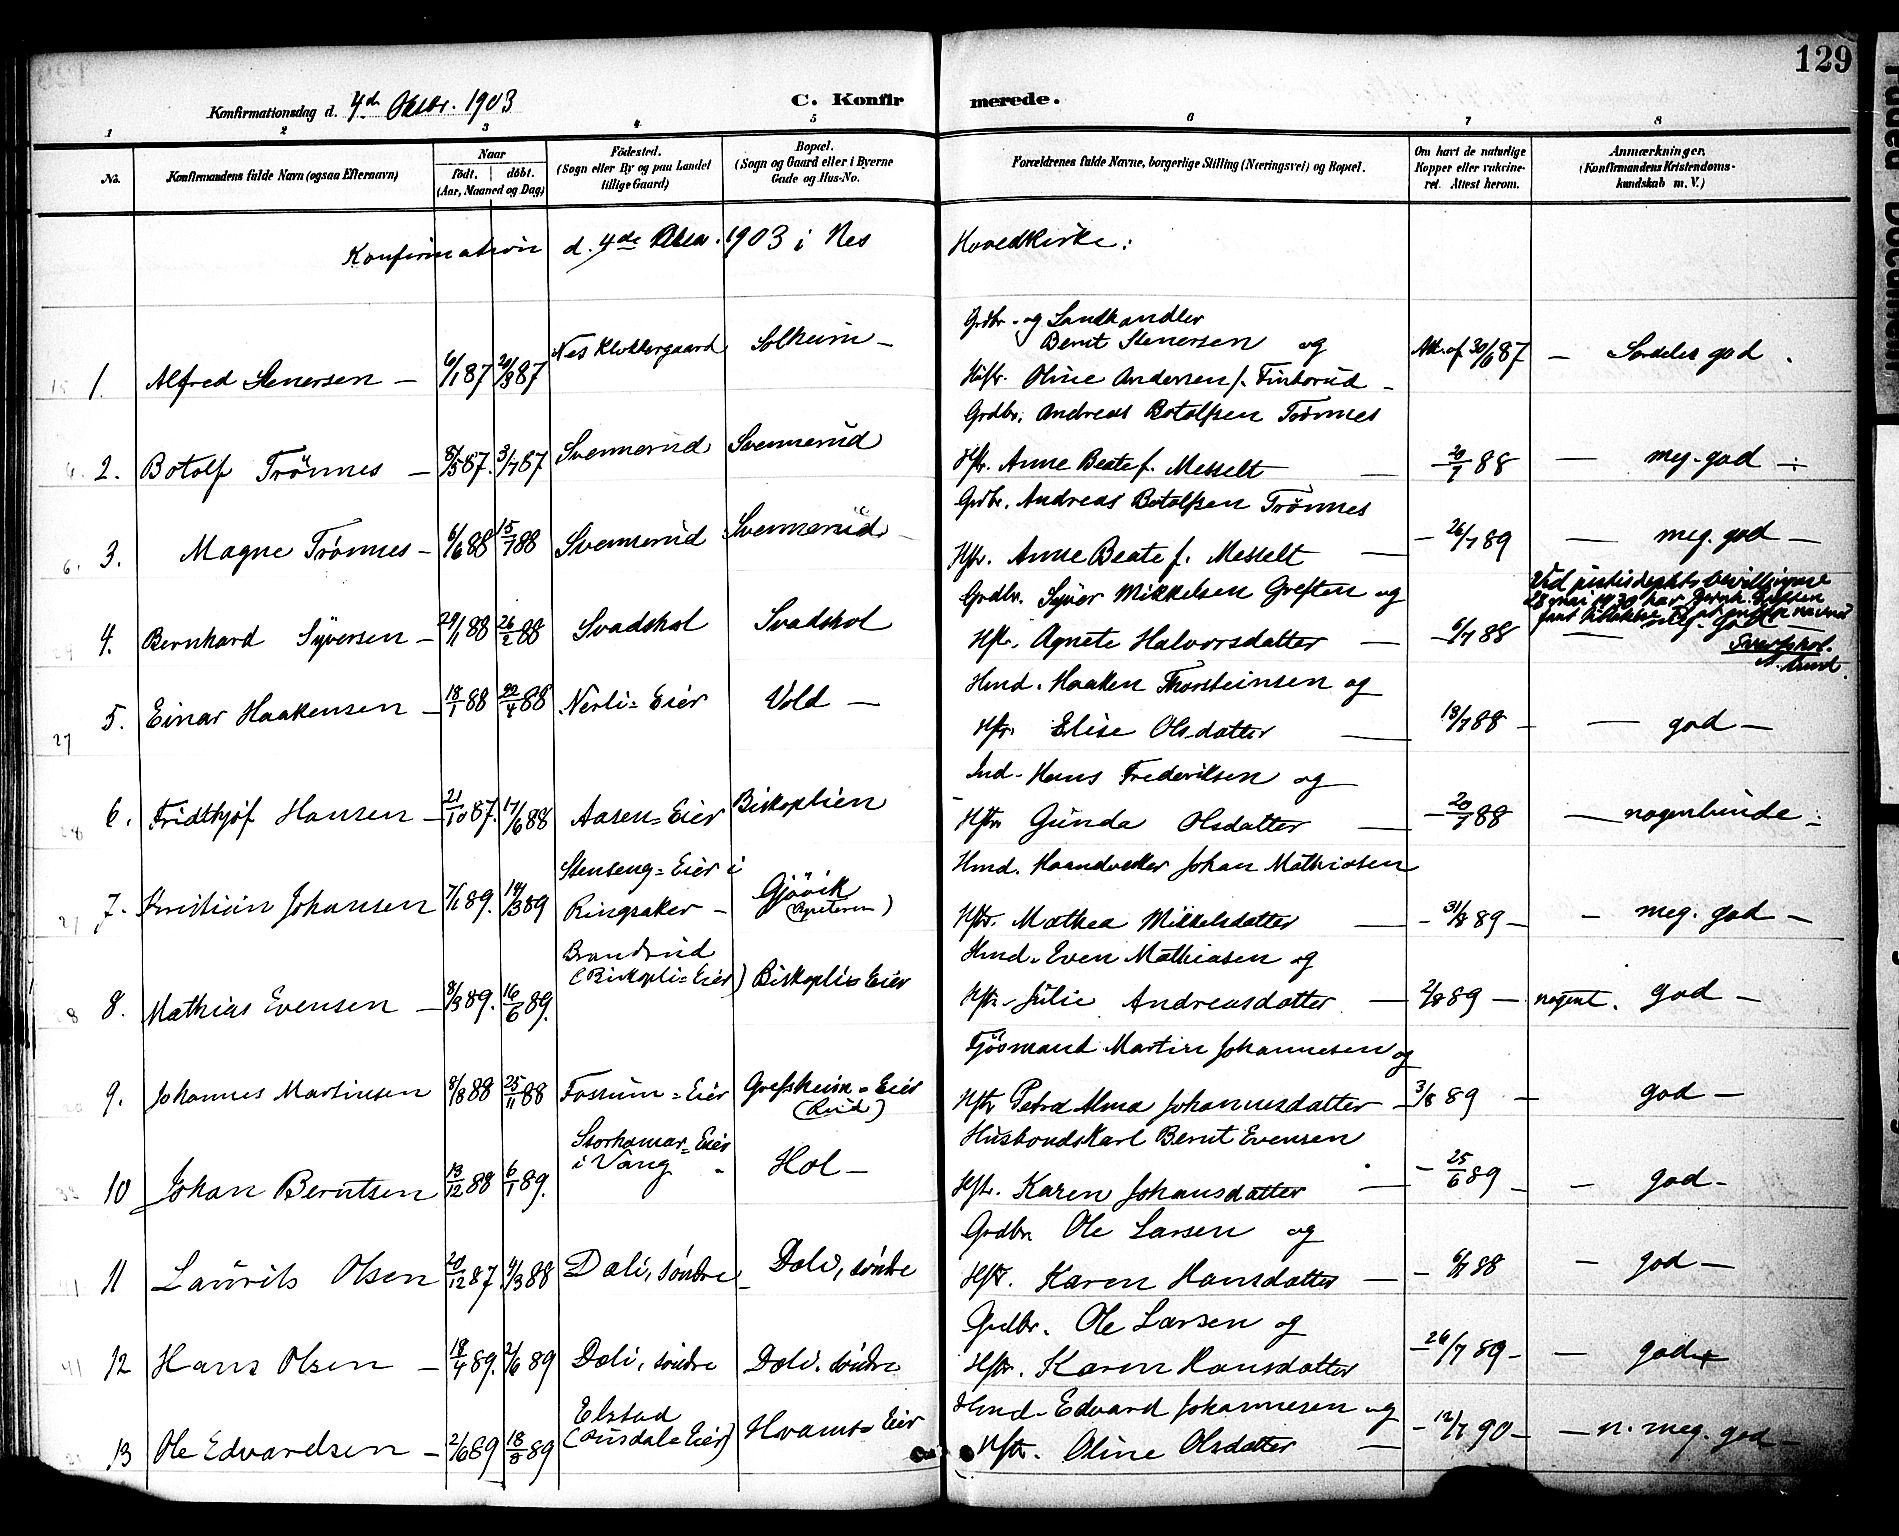 129
Konfirmationsdag d. 4de Oktbr. 1903
C. Konfirmerede.
1 2 3 4 5 6 7 8
No.
Konfirmandens fulde Navn (ogsaa Efternavn)
Naar
födt. döbt.
(Aar, Maaned og Dag)
Födested.
(Sogn eller By og paa Landet
tillige Gaard)
Bopæl.
(Sogn og Gaard eller i Byerne
Gade og Hus-No.
Forældrenes fulde Navne, borgerlige Stilling (Næringsvei) og Bopæl.
Om havt de naturlige
Kopper eller vakcine-
ret. Attest herom.
Anmærkninger.
(Konfirmandens Kristendoms-
kundskab m. V.)
Konfirmation d. 4de 1903 i Nes Hovedkirke:
Grdbr. og Landhandler
1. Alfred Stenersen – 6/1 87 20/3 87 Nes Klokkergaard Solheim – Bernt Stenersen og
Hustr. Oline Andersen f. Finborud – Att. af 30/6 87 – Særdeles god.
Grdbr. Andreas Botolfsen Trönnes
2. Botolf Trönnes – 8/5 87. 3/7 87 Svennerud Svennerud Hstr. Anne Beate f. Messelt – 20/7 88 – meg. god –
Grdbr. Andreas Botolfsen Trönnes
3. Magne Trönnes – 6/6 88 15/7 88 Svennerud Svennerud – Hstr. Anne Beate f. Messelt – 26/7 89 – meg. god –
Grdbr. Syver Mikkelsen Greften og
Ved justisdepts bevillging
28 mai 1930 har Bernh.
4. Bernhard Syversen – 29/1 88 26/2 88 Svadskol Svadskol Hstr. Agnete Halvorsdatter – 6/7 88
Hmd. Haaken Thorsteinsen og
5. Einar Haakensen – 18/1 88 22/4 88 Nerli=Eier Vold – Hstr. Elise Olsdatter – 18/7 88 – god –
Ind. Hans Frederiksen og
6. Fridthjof Hansen – 21/10 87. 17/6 88 Aasen=Eier Biskoplien Hstr. Gunda Olsdatter – 20/7 88 – nogenlunde –
Hmd. Haandverker Johan Mathiasen
7. Kristian Johansen 7/1 89. 14/3 89 Stenseng=Eier i
Ringsaker – Gjövik
Hstr. Mathea Mikkelsdatter – 31/8 89 – meg. god –
Hmd. Even Mathiasen og
8. Mathias Evensen – 8/3 89. 16/6 89. Brandrud
(Biskopli=Eier) Biskopli=Eier Hstr. Julie Andreasdatter – 2/8 89 – nogenl. god –
Fjösmand Martin Johannesen og
9. Johannes Martinsen 8/8 88 25/11 88 Fossum=Eier Grefsheim=Eier
(Rud) Hstr. Petra Alma Johannesdatter – 3/8 89 – god –
Husbondskarl Bernt Evensen
10 Johan Berntsen 13/12 88 6/1 89. Storhamar=Eier
i Vang Hol – Hstr. Karen Johansdatter – 25/6 89 – god –
Grdbr. Ole Larsen og
11 Laurits Olsen 20/12 87 4/3 88 Dæli, söndre Dæli, söndre Hstr. Karen Hansdatter – 6/7 88 – god –
Grdbr. Ole Larsen og
12 Hans Olsen – 18/4 89. 2/6 89 Dæli, söndre Dæli, söndre Hstr. Karen Hansdatter – 26/7 89 – god
Hmd. Edvard Johannesen og
13 Ole Edvardsen – 2/6 89 18/8 89 Elstad
Hvams=Eier Hstr. Oline Olsdatter – 12/7 90 – n. meg. god –